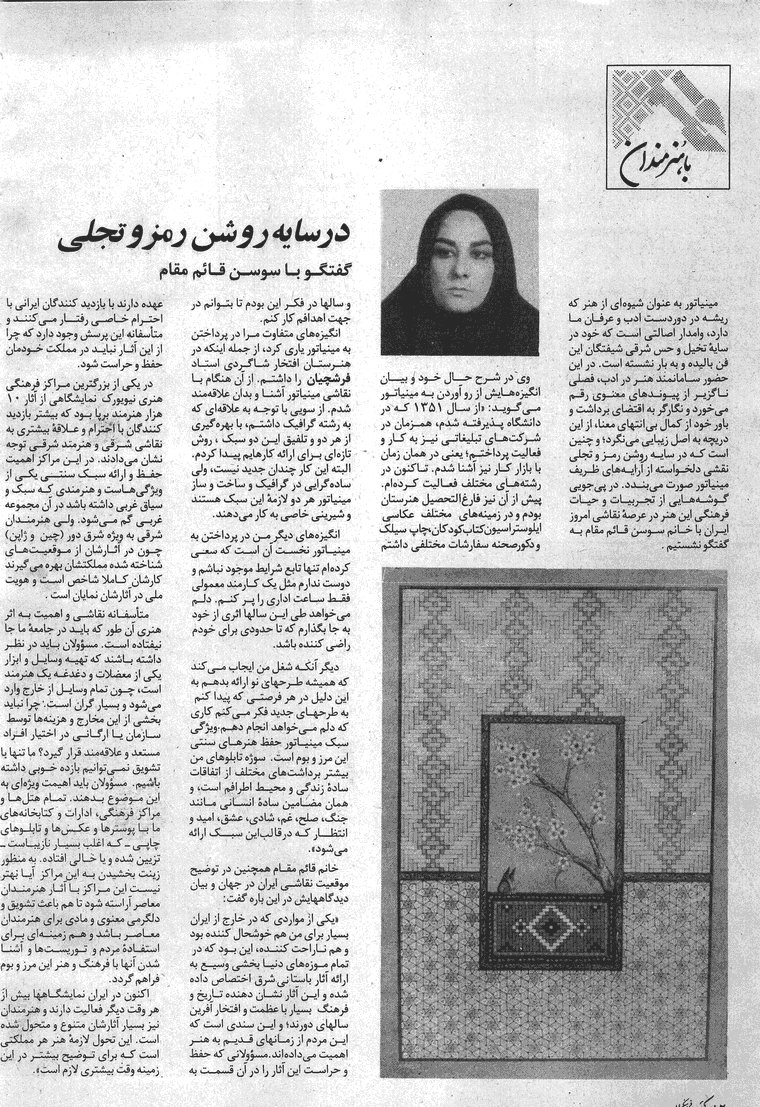 با هنرمندان
در سایه روشن رمز و تجلی
گفتگو با سوسن قائم مقام
مینیاتور به عنوان شیوه‌ای از هنر که
ریشه در دوردست ادب و عرفان ما
دارد، وامدار اصالتی است که خود در
سایهٔ تخیل و حس شرقی شیفتگان این
فن بالیده و به بار نشسته است. در این
حضور سامانمند هنر در ادب، فصلی
ناگزیر از پیوندهای معنوی رقم
می‌خورد و نگارگر به اقتضای برداشت و
باور خود از کمال بی‌انتهای معنا، از این
دریچه به اصل زیبایی می‌نگرد؛ و چنین
است که در سایه روشن رمز و تجلی
نقشی دلخواسته از آرایه‌های ظریف
مینیاتور صورت می‌بندد. در پی‌جویی
گوشه‌هایی از تجربیات و حیات
فرهنگی این هنر در عرصهٔ نقاشی امروز
ایران با خانم سوسن قائم مقام به
گفتگو نشستیم.
وی در شرح حال خود و بیان
انگیزه‌هایش از رو آوردن به مینیاتور
می‌گوید: «از سال ۱۳۵۱ که در
دانشگاه پذیرفته شدم، همزمان در
شرکت‌های تبلیغاتی نیز به کار و
فعالیت پرداختم؛ یعنی در همان زمان
با بازار کار نیز آشنا شدم. تاکنون در
رشته‌های مختلف فعالیت کرده‌ام.
پیش از آن نیز فارغ‌التحصیل هنرستان
بودم و در زمینه‌های مختلف عکاسی
ایلوستراسیون کتاب کودکان، چاپ سیلک
و دکور صحنه سفارشات مختلفی داشتم
و سالها در فکر این بودم تا بتوانم در
جهت اهدافم کار کنم.
انگیزه‌های متفاوت مرا در پرداختن
به مینیاتور یاری کرد، از جمله اینکه در
هنرستان افتخار شاگردی استاد
فرشچیان را داشتم. از آن هنگام با
نقاشی مینیاتور آشنا و بدان علاقه‌مند
شدم. از سویی با توجه به علاقه‌ای که
به رشته گرافیک داشتم، با بهره‌گیری
از هر دو و تلفیق این دو سبک، روش
تازه‌ای برای ارائه کارهایم پیدا کردم.
البته این کار چندان جدید نیست، ولی
ساده‌گرایی در گرافیک و ساخت و ساز
مینیاتور هر دو لازمهٔ این سبک هستند
و شیرینی خاصی به کار می‌دهند.
انگیزه‌های دیگر من در پرداختن به
مینیاتور نخست آن است که سعی
کرده‌ام تنها تابع شرایط موجود نباشم و
دوست ندارم مثل یک کارمند معمولی
فقط ساعت اداری را پر کنم. دلم
می‌خواهد طی این سالها اثری از خود
به جا بگذارم که تا حدودی برای خودم
راضی کننده باشد.
دیگر آنکه شغل من ایجاب می‌کند
که همیشه طرحهای نو ارائه بدهم به
این دلیل در هر فرصتی که پیدا کنم
به طرحهای جدید فکر می‌کنم کاری
که دلم می‌خواهد انجام دهم. ویژگی
سبک مینیاتور حفظ هنرهای سنتی
این مرز و بوم است. سوژه تابلوهای من
بیشتر برداشت‌های مختلف از اتفاقات
سادهٔ زندگی و محیط اطرافم است، و
همان مضامین سادهٔ انسانی مانند
جنگ، صلح، غم، شادی، عشق، امید و
انتظار که در قالب این سبک ارائه
می‌شود».
خانم قائم مقام همچنین در توضیح
موقعیت نقاشی ایران در جهان و بیان
دیدگاههایش در این باره گفت:
«یکی از مواردی که در خارج از ایران
بسیار برای من هم خوشحال کننده بود
و هم ناراحت کننده، این بود که در
تمام موزه‌های دنیا بخشی وسیع به
ارائه آثار باستانی شرق اختصاص داده
شده و این آثار نشان دهنده تاریخ و
فرهنگ بسیار با عظمت و افتخار آفرین
سالهای دورند؛ و این سندی است که
این مردم از زمانهای قدیم به هنر
اهمیت می‌داده‌اند. مسؤولانی که حفظ
و حراست این آثار را در آن قسمت به
عهده دارند با بازدید کنندگان ایرانی با
احترام خاصی رفتار می‌کنند و
متأسفانه این پرسش وجود دارد که چرا
از این آثار نباید در مملکت خودمان
حفظ و حراست شود.
در یکی از بزرگترین مراکز فرهنگی
هنری نیویورک نمایشگاهی از آثار ۱۰
هزار هنرمند برپا بود که بیشتر بازدید
کنندگان با احترام و علاقهٔ بیشتری به
نقاشی شرقی و هنرمند شرقی توجه
نشان می‌دادند. در این مراکز اهمیت
حفظ و ارائه سبک سنتی یکی از
ویژگی‌هاست و هنرمندی که سبک و
سیاق غربی داشته باشد در آن مجموعه
غربی گم می‌شود. ولی هنرمندان
شرقی به ویژه شرق دور (چین و ژاپن)
چون در آثارشان از موقعیت‌های
شناخته شده مملکتشان بهره می‌گیرند
کارشان کاملا شاخص است و هویت
ملی در آثارشان نمایان است.
متأسفانه نقاشی و اهمیت به اثر
هنری آن طور که باید در جامعهٔ ما جا
نیفتاده است. مسؤولان باید در نظر
داشته باشند که تهیه وسایل و ابزار
یکی از معضلات و دغدغه یک هنرمند
است، چون تمام وسایل از خارج وارد
می‌شود و بسیار گران است. چرا نباید
بخشی از این مخارج و هزینه‌ها توسط
سازمان یا ارگانی در اختیار افراد
مستعد و علاقه‌مند قرار گیرد؟ ما تنها با
تشویق نمی‌توانیم بازده خوبی داشته
باشیم. مسؤولان باید اهمیت ویژه‌ای به
این موضوع بدهند. تمام هتل‌ها و
مراکز فرهنگی، ادارات و کتابخانه‌های
ما با پوسترها و عکس‌ها و تابلوهای
چاپی ـ که اغلب بسیار نازیباست ـ
تزیین شده و یا خالی افتاده. به منظور
زینت بخشیدن به این مراکز آیا بهتر
نیست این مراکز با آثار هنرمندان
معاصر آراسته شود تا هم باعث تشویق و
دلگرمی معنوی و مادی برای هنرمندان
معاصر باشد و هم زمینه‌ای برای
استفادهٔ مردم و توریست‌ها و آشنا
شدن آنها با فرهنگ و هنر این مرز و بوم
فراهم گردد.
اکنون در ایران نمایشگاهها بیش از
هر وقت دیگر فعالیت دارند و هنرمندان
نیز بسیار آثارشان متنوع و متحول شده
است. این تحول لازمهٔ هنر هر مملکتی
است که برای توضیح بیشتر در این
زمینه وقت بیشتری لازم است».